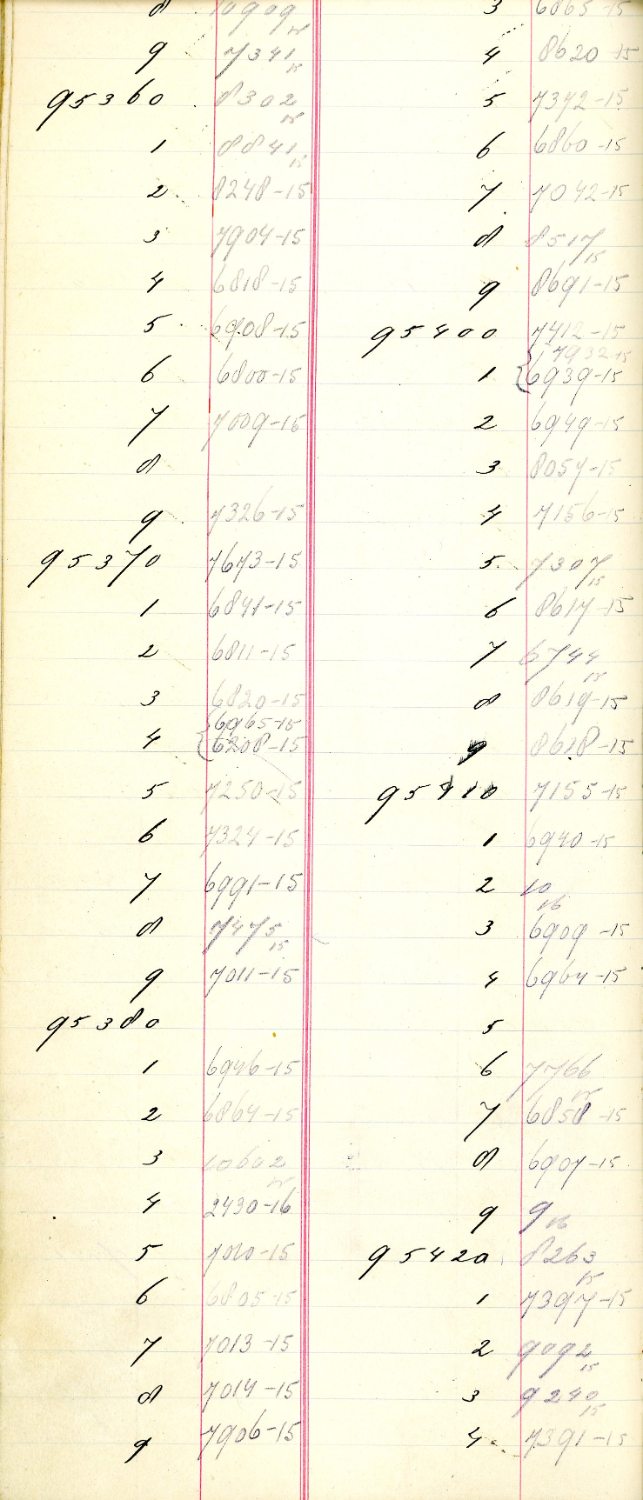 8 10909 15
9 7341 15
95360 8302 15
1 8841 15
2 8248-15
3 7904-15
4 6818-15
5 6908-15
6 6800-15
7 7009-15
8
9 7326-15
95370 7673-15
1 6841-15
2 6811-15
3 6820-15
6965-15
4 6208-15
5 7250-15
6 7324-15
7 6991-15
8 7475 15
9 7011-15
95380
1 6946-15
2 6864-15
3 10602 15
4 2430-16
5 7010-15
6 6805-15
7 7013-15
8 7014-15
9 7906-15
3 6865-15
4 8620-15
5 7392-15
6 6860-15
7 7042-15
8 8517 15
9 8691-15
95400 7412-15
7932-15
1 6939-15
2 6949-15
3 8054-15
4 7156-15
5 7307 15
6 8617-15
7 6744 15
8 8619-15
9 8618-15
95410 7155-15
1 6940-15
2 10 16
3 6909-15
4 6964-15
5
6 7766 15
7 6858-15
8 6907-15
9 9 16
95420 8263 15
1 7397-15
2 9092 15
3 9240 15
4 7391-15